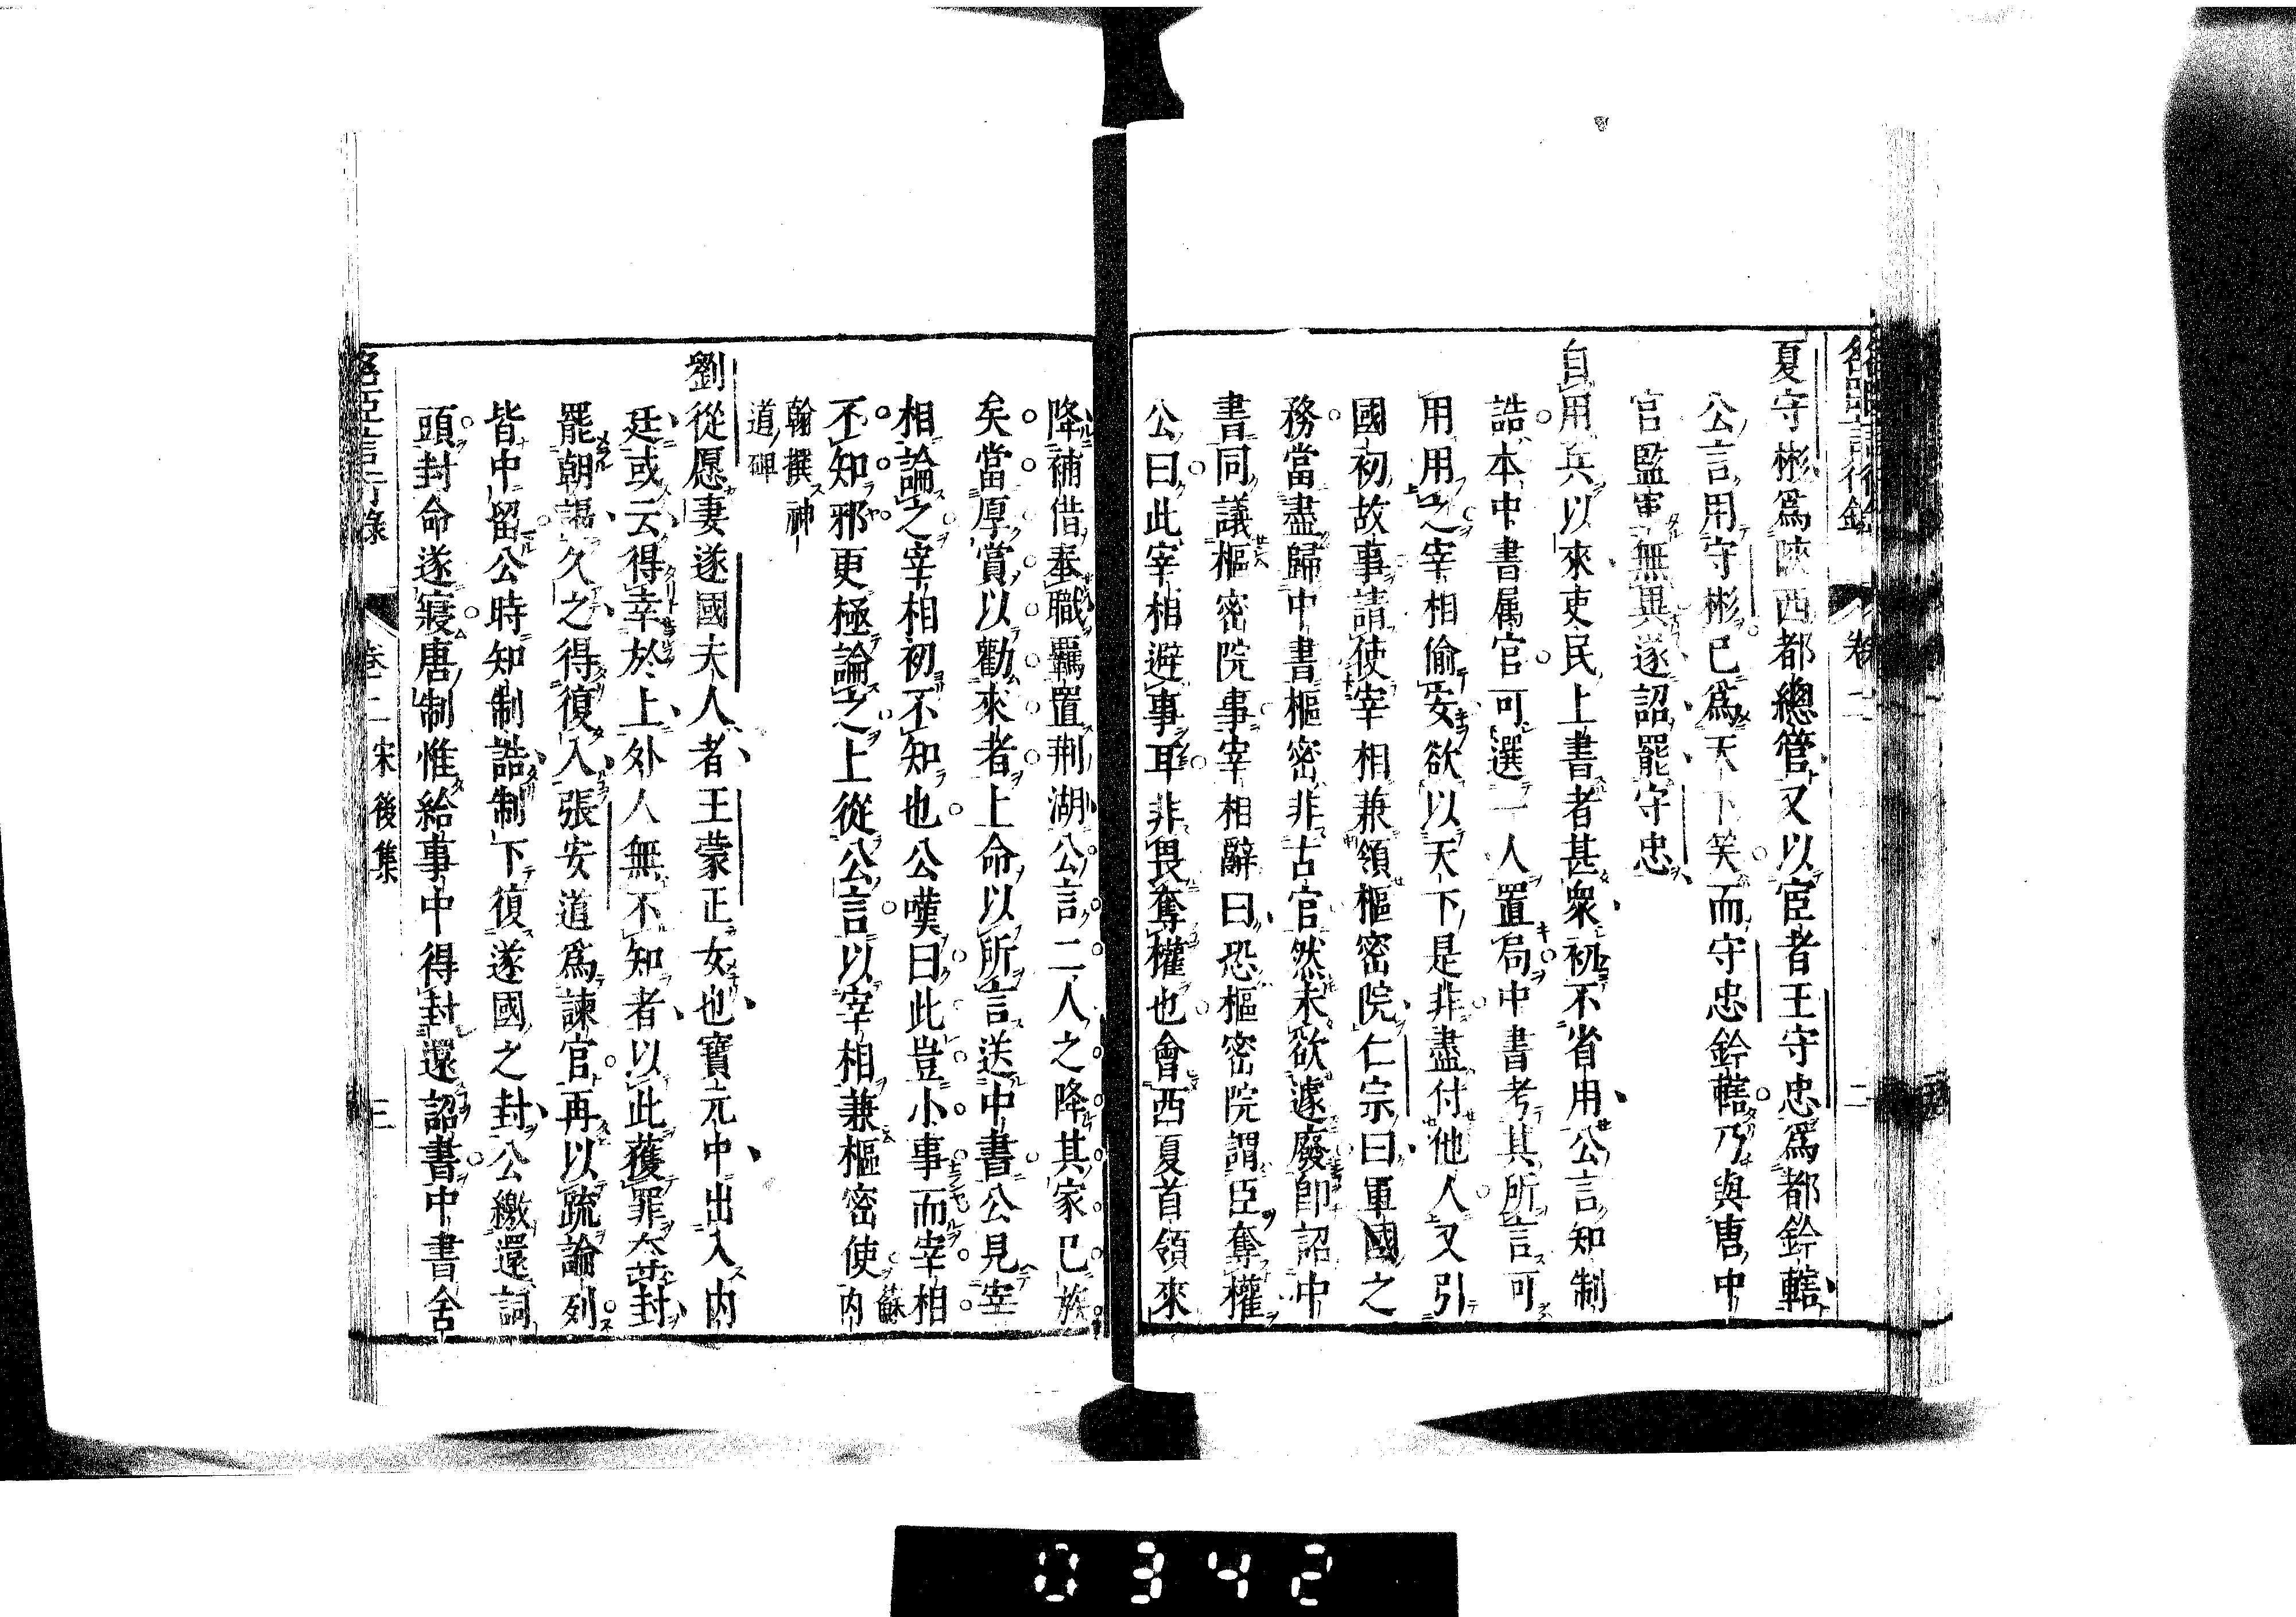 名臣言行錄 卷二 二
夏守彬爲陝西都總管又以宦者王守忠爲都鈐轄
公言用守彬已爲天下笑而守忠鈐轄乃與唐中
官監軍無異遂詔罷守忠
自用兵以來吏民上書者甚衆初不省用公言知制
誥本中書属官可選一人置局中書考其所言可
用用之宰相偷安欲以天下是非盡付他人又引
國初故事請使宰相兼領樞密院仁宗曰軍國之
務當盡歸中書樞密非古官然未欲遽廢即詔中
書同議樞密院事宰相辭曰恐樞密院謂臣奪權
公曰此宰相避事耳非畏奪權也會西夏首領來
降補借奉職羈置荆湖公言二人之降其家已族
矣當厚賞以勸來者上命以所言送中書公見宰
相論之宰相初不知也公嘆曰此豈小事而宰相
不知邪更極論之上從公言以宰相兼樞密使蘇內
翰撰神
道碑
劉從愿妻遂國夫人者王蒙正女也寶元中出入內
廷或云得幸於上外人無不知者以此獲罪奪封
罷朝謁久之得復入張安道爲諫官再以疏論列
皆中留公時知制誥制下復遂國之封公繳還詞
頭封命遂寢唐制惟給事中得封還詔書中書舍
名臣言行錄 卷二宋後集 三
0342